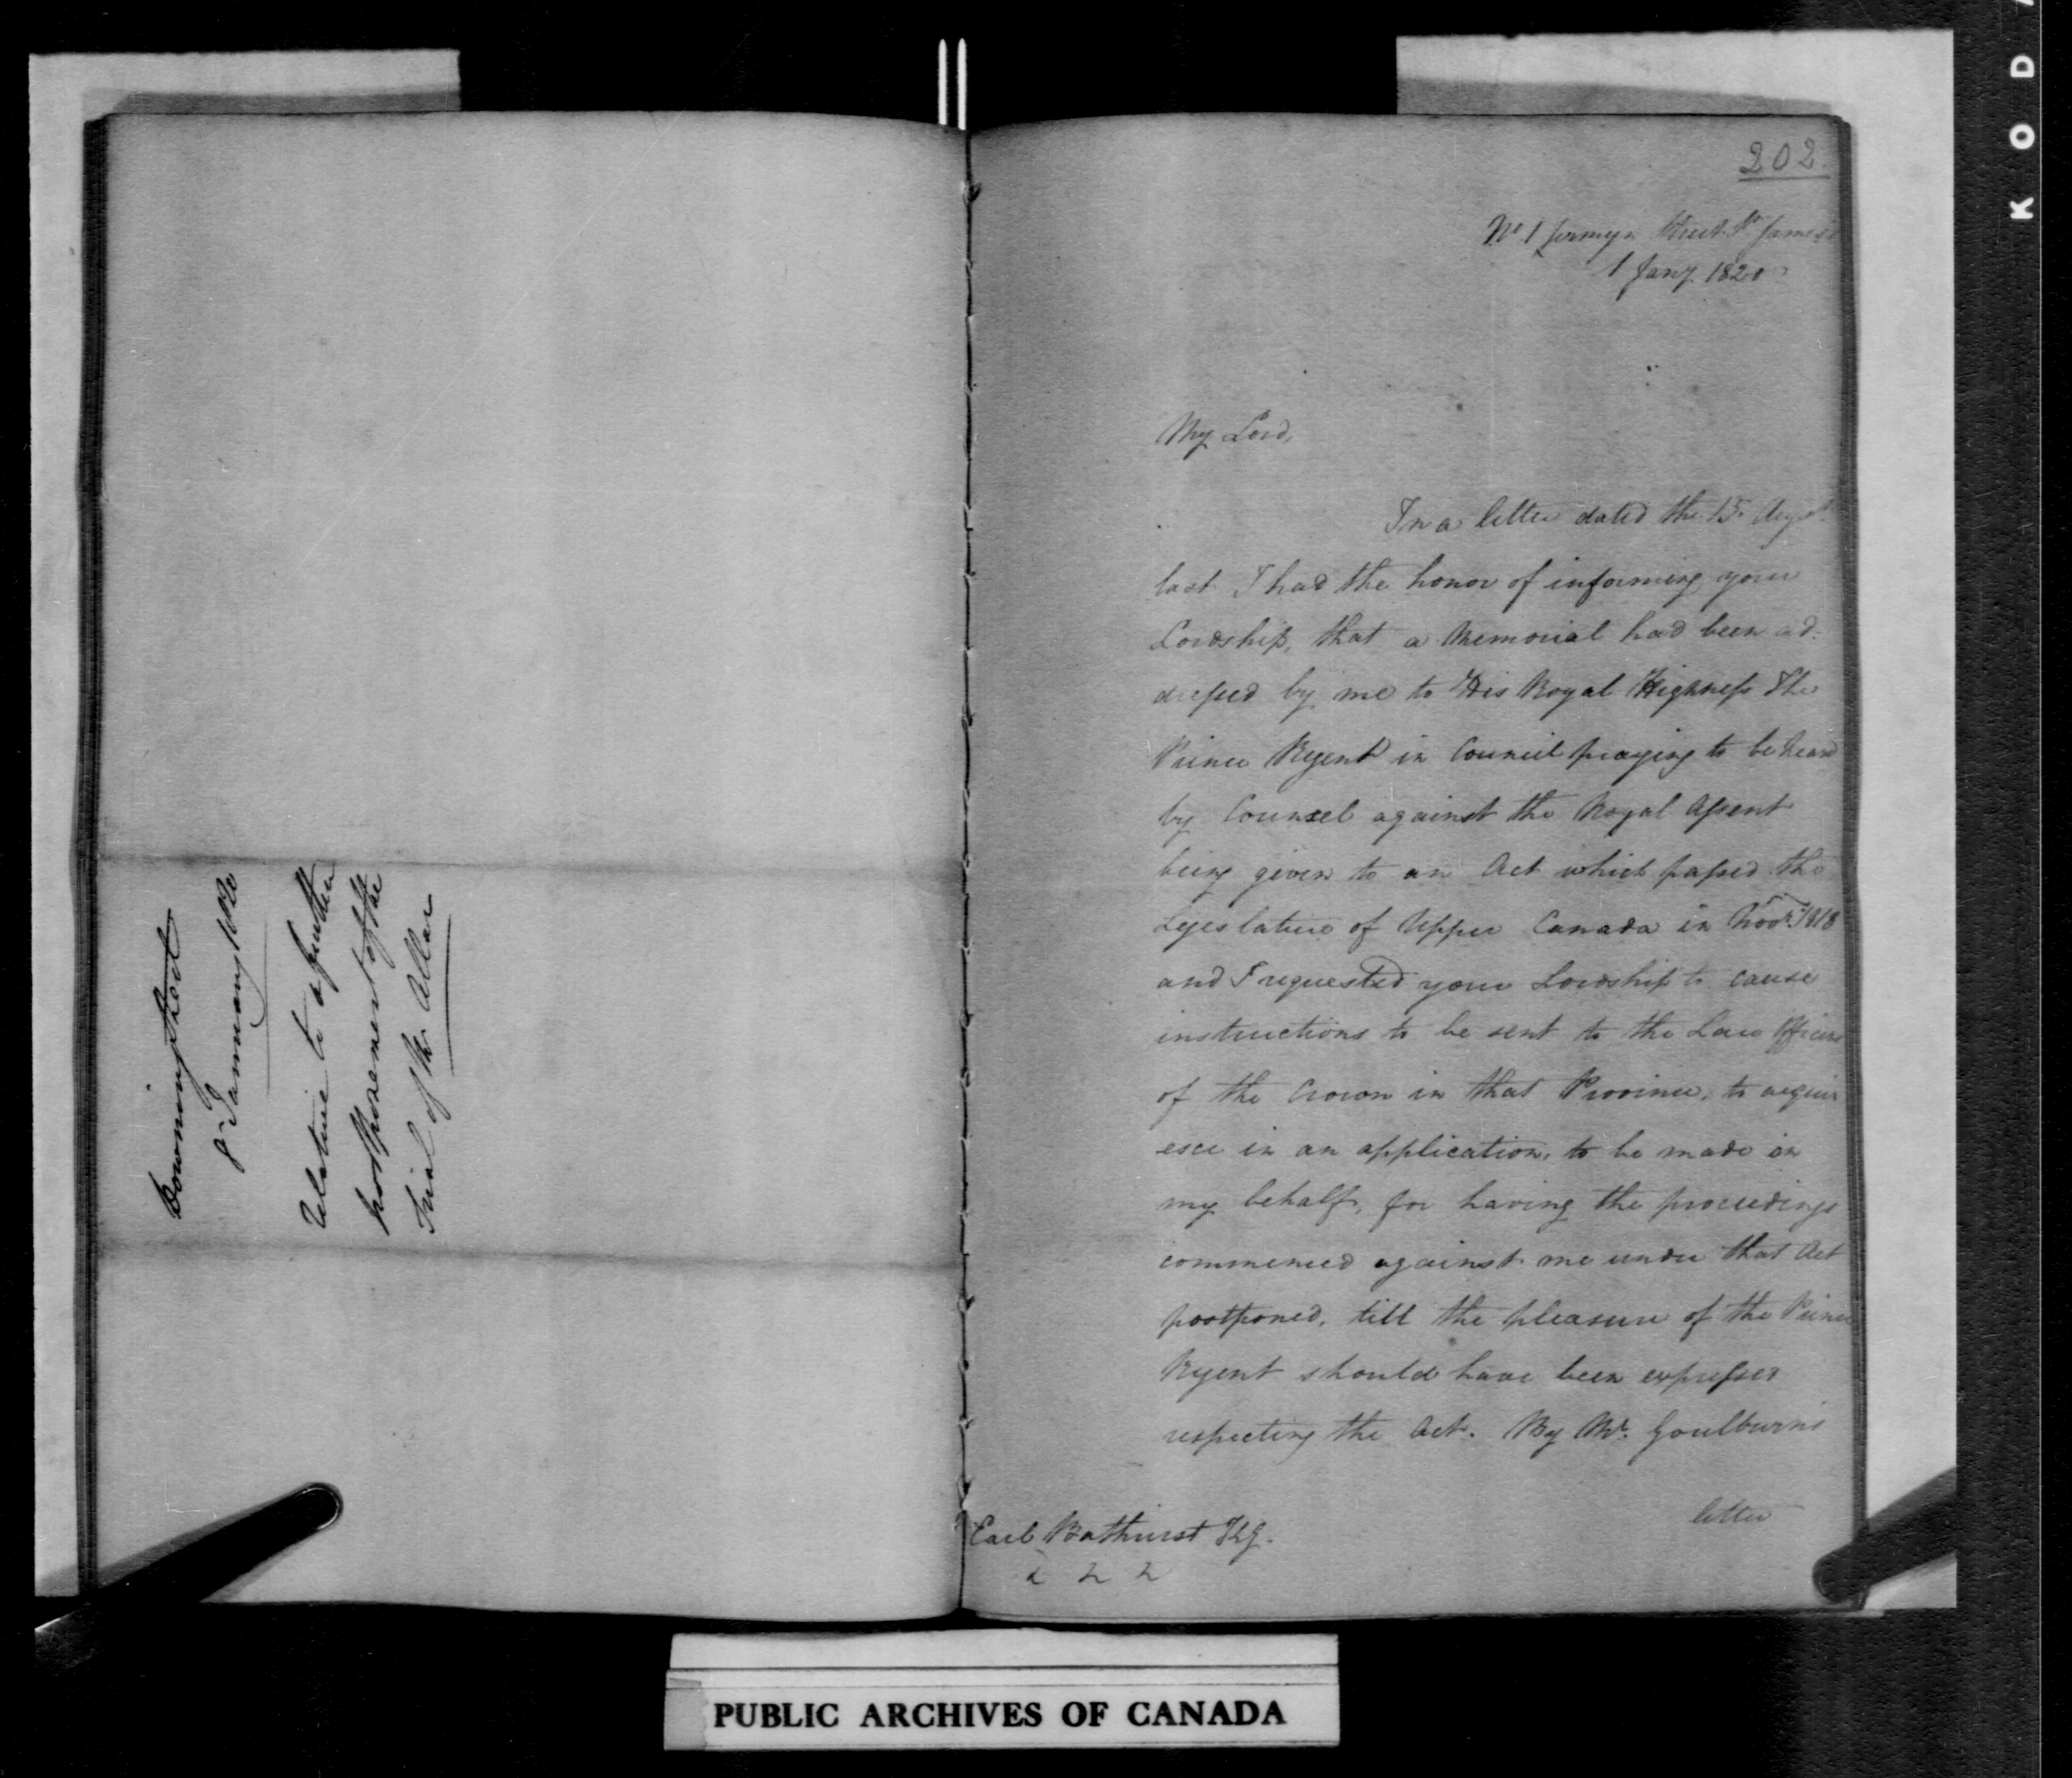 Downing Street
8 January 1820
Relative to a further
postponement of the
Trial of Mr Allan
202.
No 1 Jermyn Street St James's
1 Jany. 1820
My Lord,
In a letter dated the 15. August
last I had the honor of informing your
Lordship, that a Memorial had been ad-
dressed by me to His Royal Highness The
Prince Regent in Council praying to be heard
by Counsel against the Royal Assent
being given to an Act which passed the
Legislature of Upper Canada in Novr. 1818
and I requested your Lordship to cause
instructions to be sent to the Law Officers
of the Crown in that Province, to acqui
esce in an application, to be made in
my behalf, for having the proceedings
commenced against me under that Act
postponed, till the pleasure of the Prince
Regent should have been expressed
respecting the Act. By Mr. Goulburn's
letter
Earl Bathurst KG.
PUBLIC ARCHIVES OF CANADA
K O D